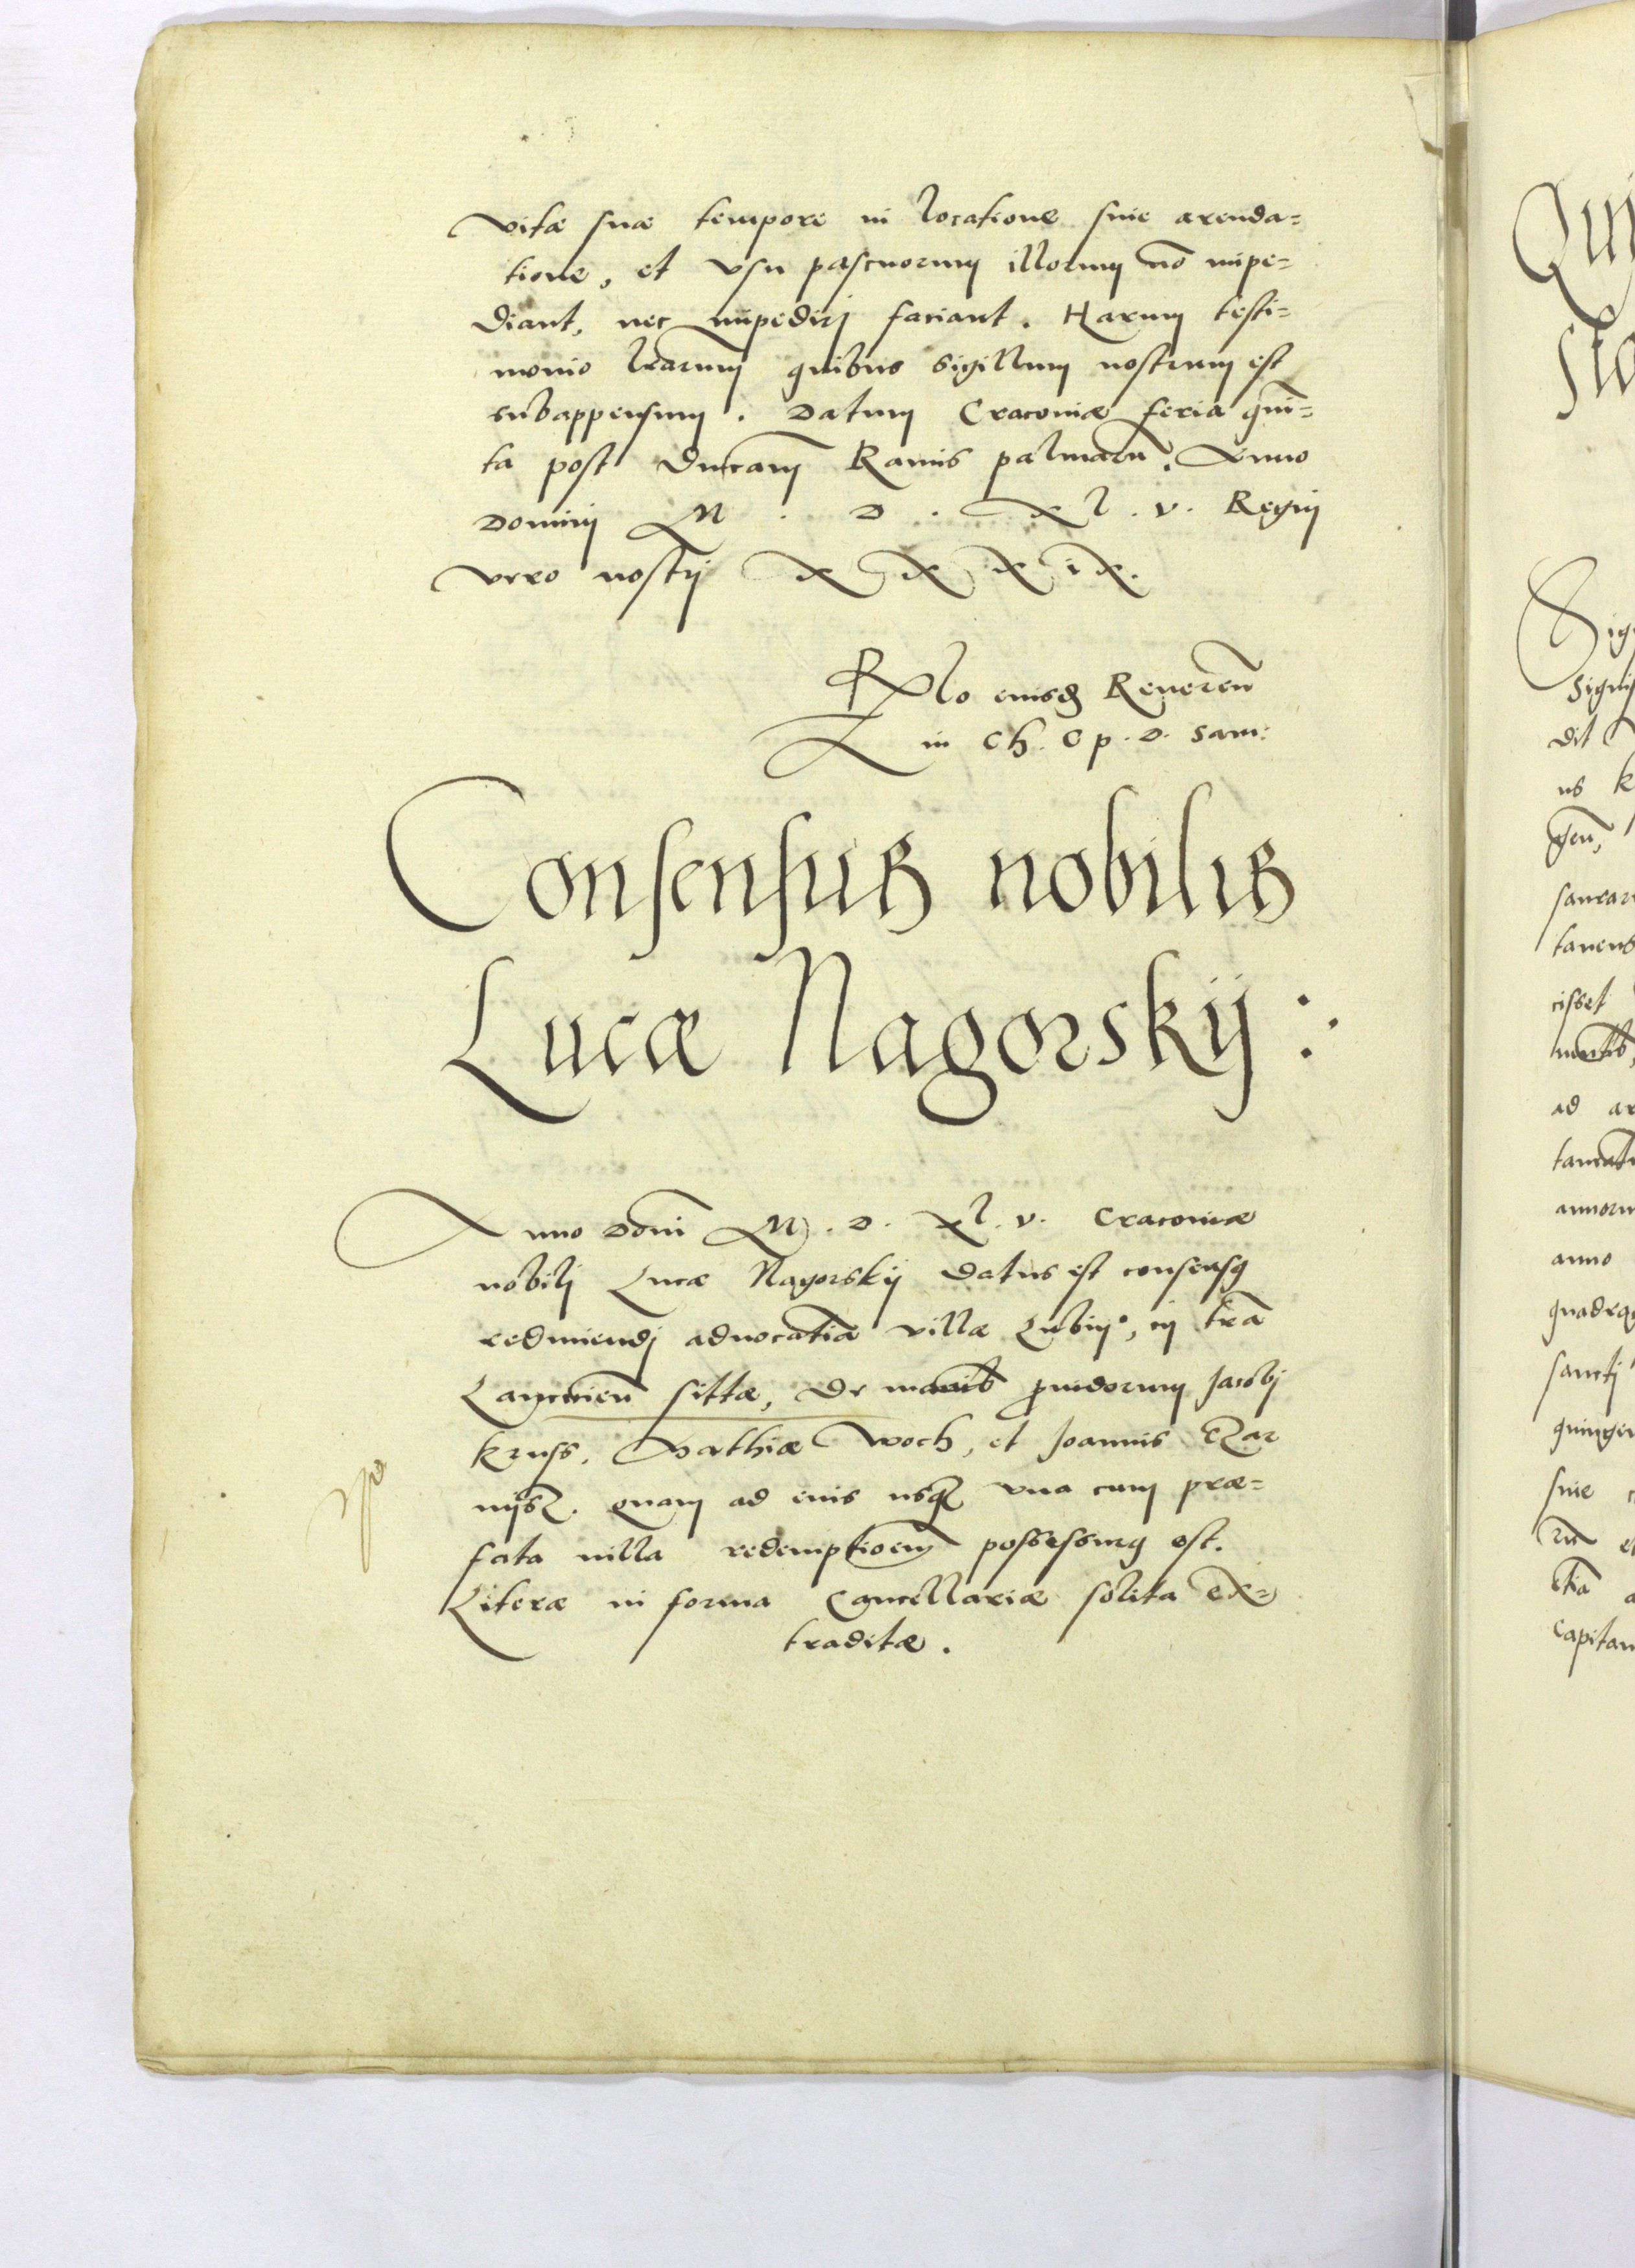 vitæ suæ tempore in locatione siue arenda=
tione, et vsu pascuorum illorum nō impe=
diant, nec impediri faciant. Harum testi=
monio lrārum quibus Sigillum nostrum est
subappensum. Datum Cracouiæ feria quin=
ta post Dnicam Ramis palmarū. Anno
Dominj M. D. xl. v. Regnj
vero nostrj xxxix.
Rlo eiusdē Reueren̄
in Ch. Ep. D. Sam:
Consensus nobilis
Lucæ Nagorskij:
Anno Domī M. D. xl. v. Cracouiæ
nobilj Lucæ Nagorskij datus est consensq
redimendj aduocatiā villæ Lubin, in trā
Lancicien̄ sittæ, de manib prouidorum Jacobj
Kruss, Mathiæ Woch, et Joannis Czar
nijsz. Quam ad eius usqz vna cum præ=
fata uilla redemptioem possessurq est.
Literæ in forma Cancellariæ solita ex=
traditæ.
Qui
Sig
dit
us k
sancti
anno
ad
siue
Capitan